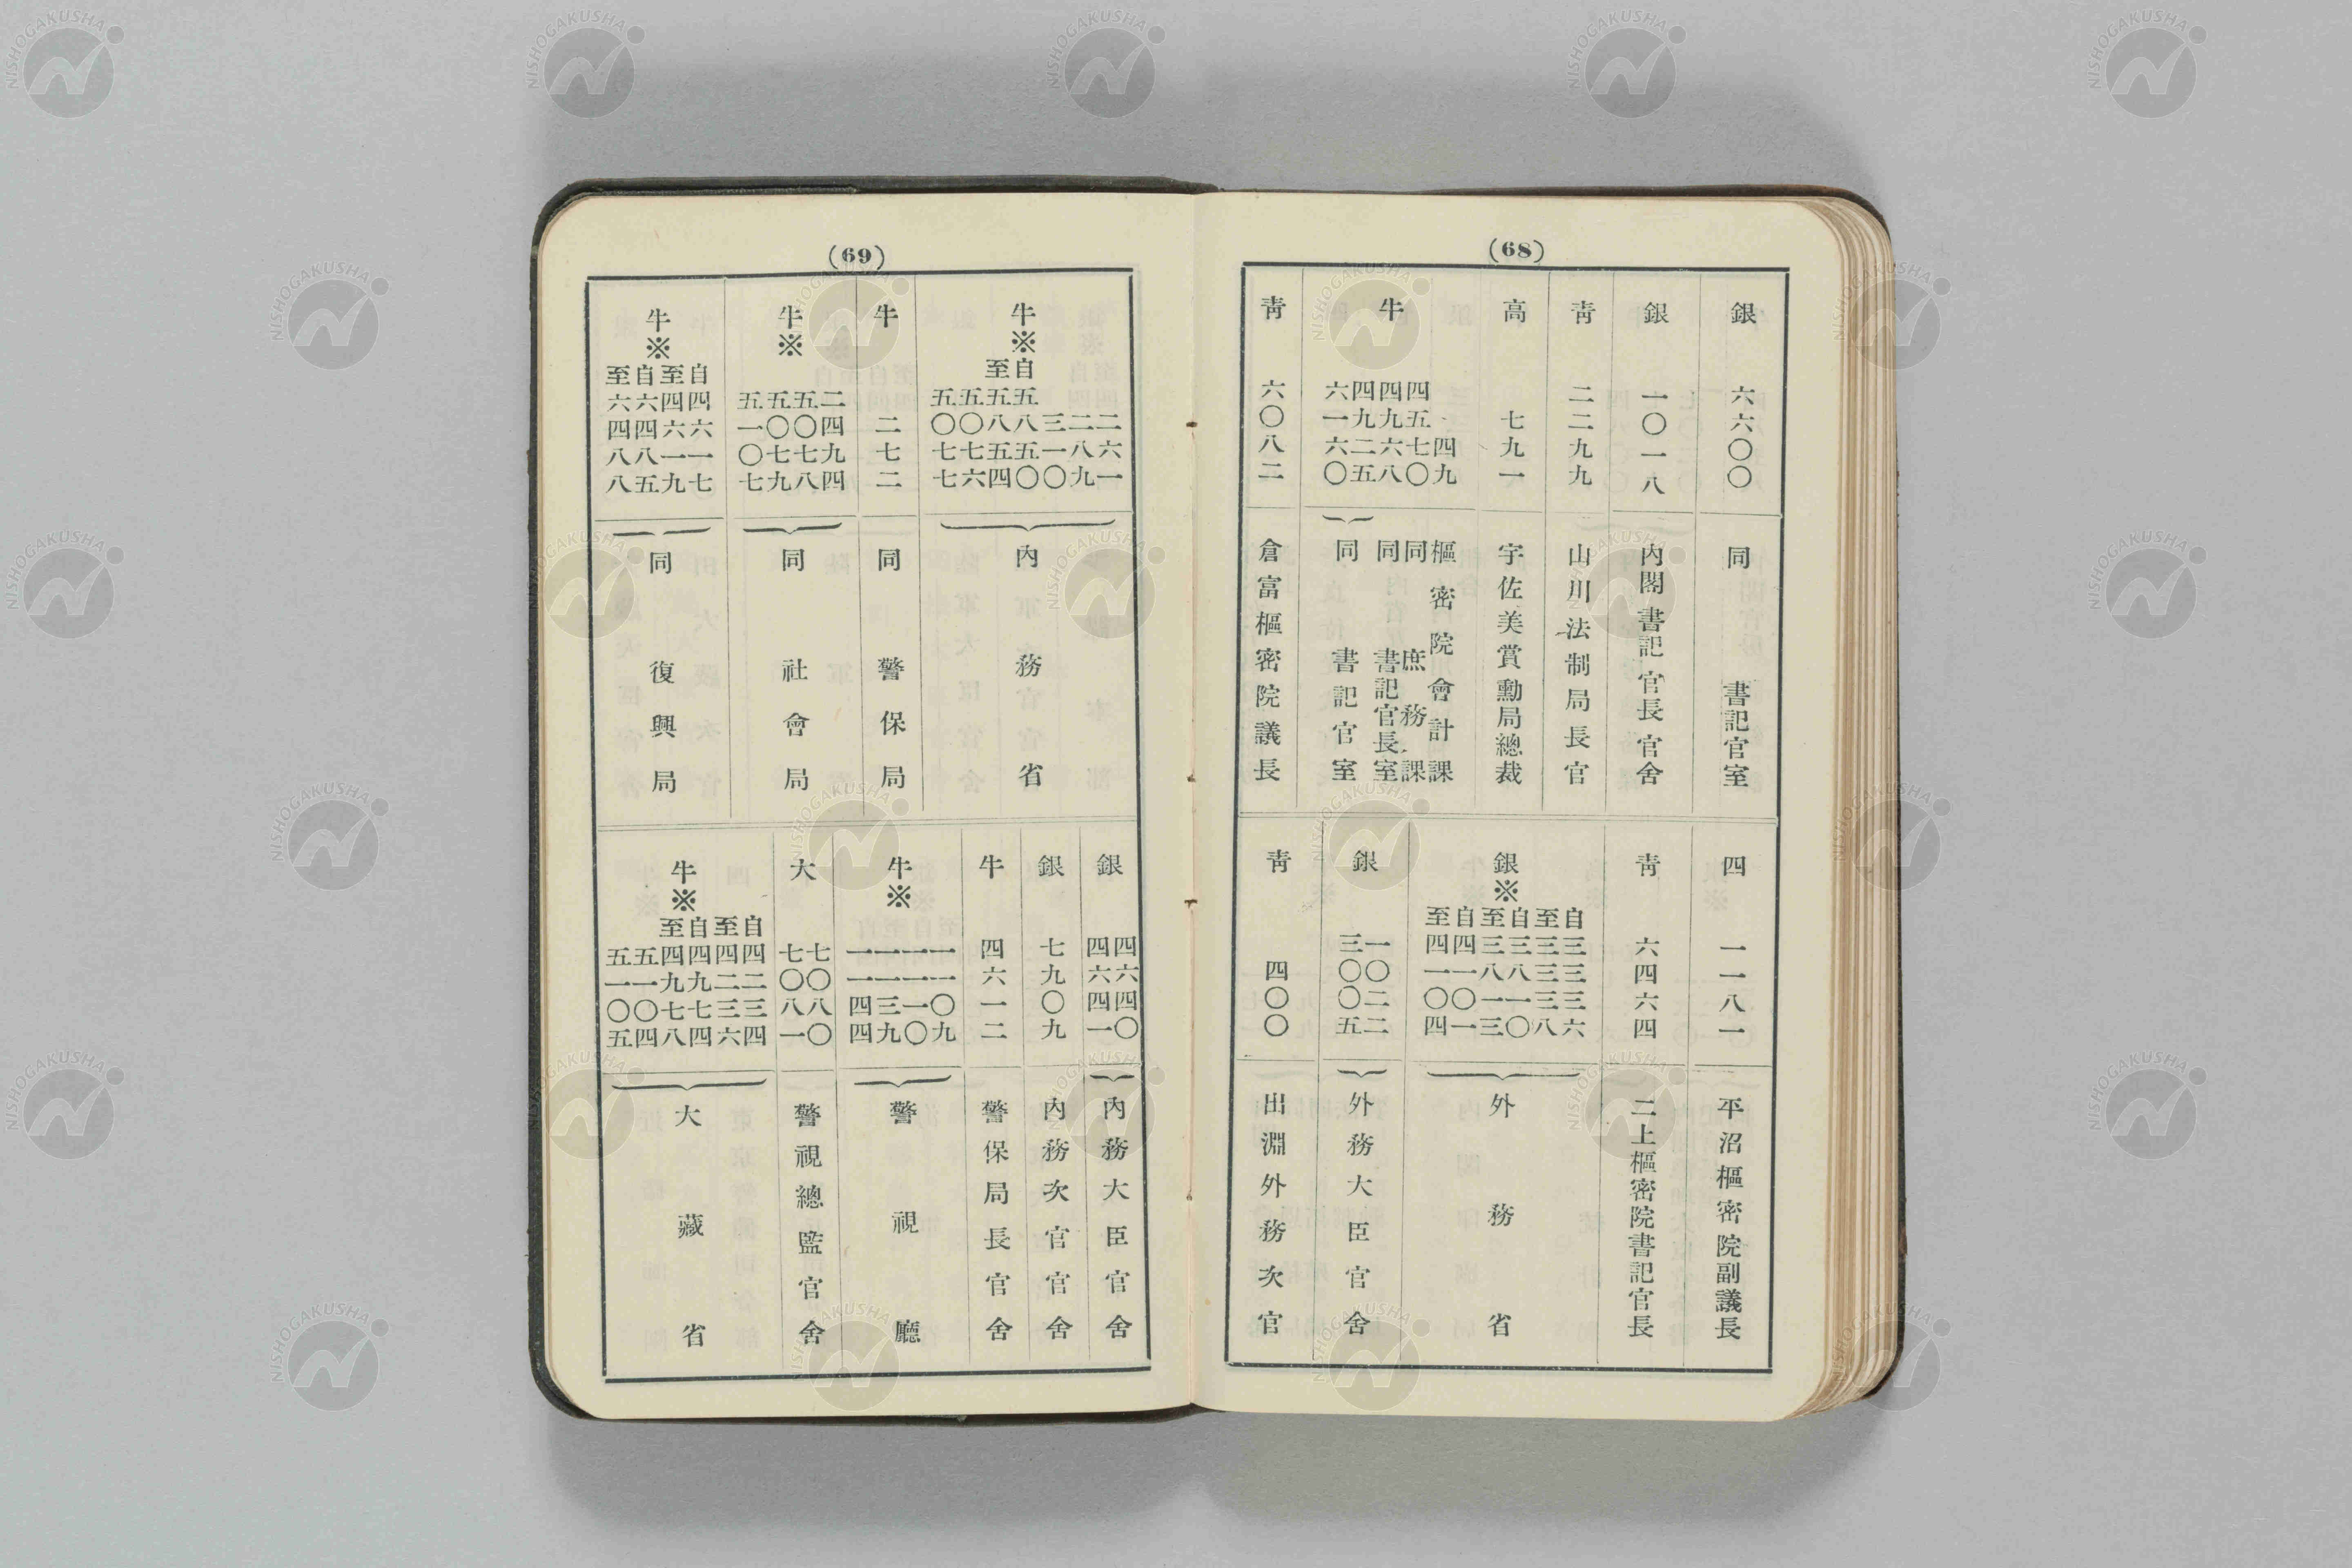 (68)
銀
六六〇〇
同書記官室
銀
一〇一八
内閣書記官長官舍
靑
二二九九
山川法制局長官
高
七九一
宇佐美賞勳局總裁
牛
四九
樞密院會計課
四五七〇
同庶務課
四九六八
同書記官長室
四九二五
六一六〇
同書記官室
靑
六〇八二
倉富樞密院議長
四
一一八一
平沼樞密院副議長
靑
六四六四
二上樞密院書記官長
銀※
自三三三六
至三三三八
自三八一〇
至三八一三
自四一〇一
至四一〇四
外務省
銀
一〇二二
三〇〇五
外務大臣官舍
靑
四〇〇
出淵外務次官
(69)
牛※
二六一
二八九
三一〇
自五八五〇
至五八五四
五〇七六
五〇七七
内務省
牛
二七二
同警保局
牛※
二四九四
五〇七八
五〇七九
五一〇七
同社會局
牛※
自四六一七
至四六一九
自六四八五
至六四八八
同復興局
銀
四六四〇
四六四一
内務大臣官舍
銀
七九〇九
内務次官官舍
牛
四六一二
警保局長官舍
牛※
一一〇九
一一一〇
一一三九
一一四四
警視廳
大
七〇八〇
七〇八一
警視總監官舍
牛※
自四二三四
至四二三六
自四九七四
至四九七八
五一〇四
五一〇五
大藏省
NISHOGAKUSHA